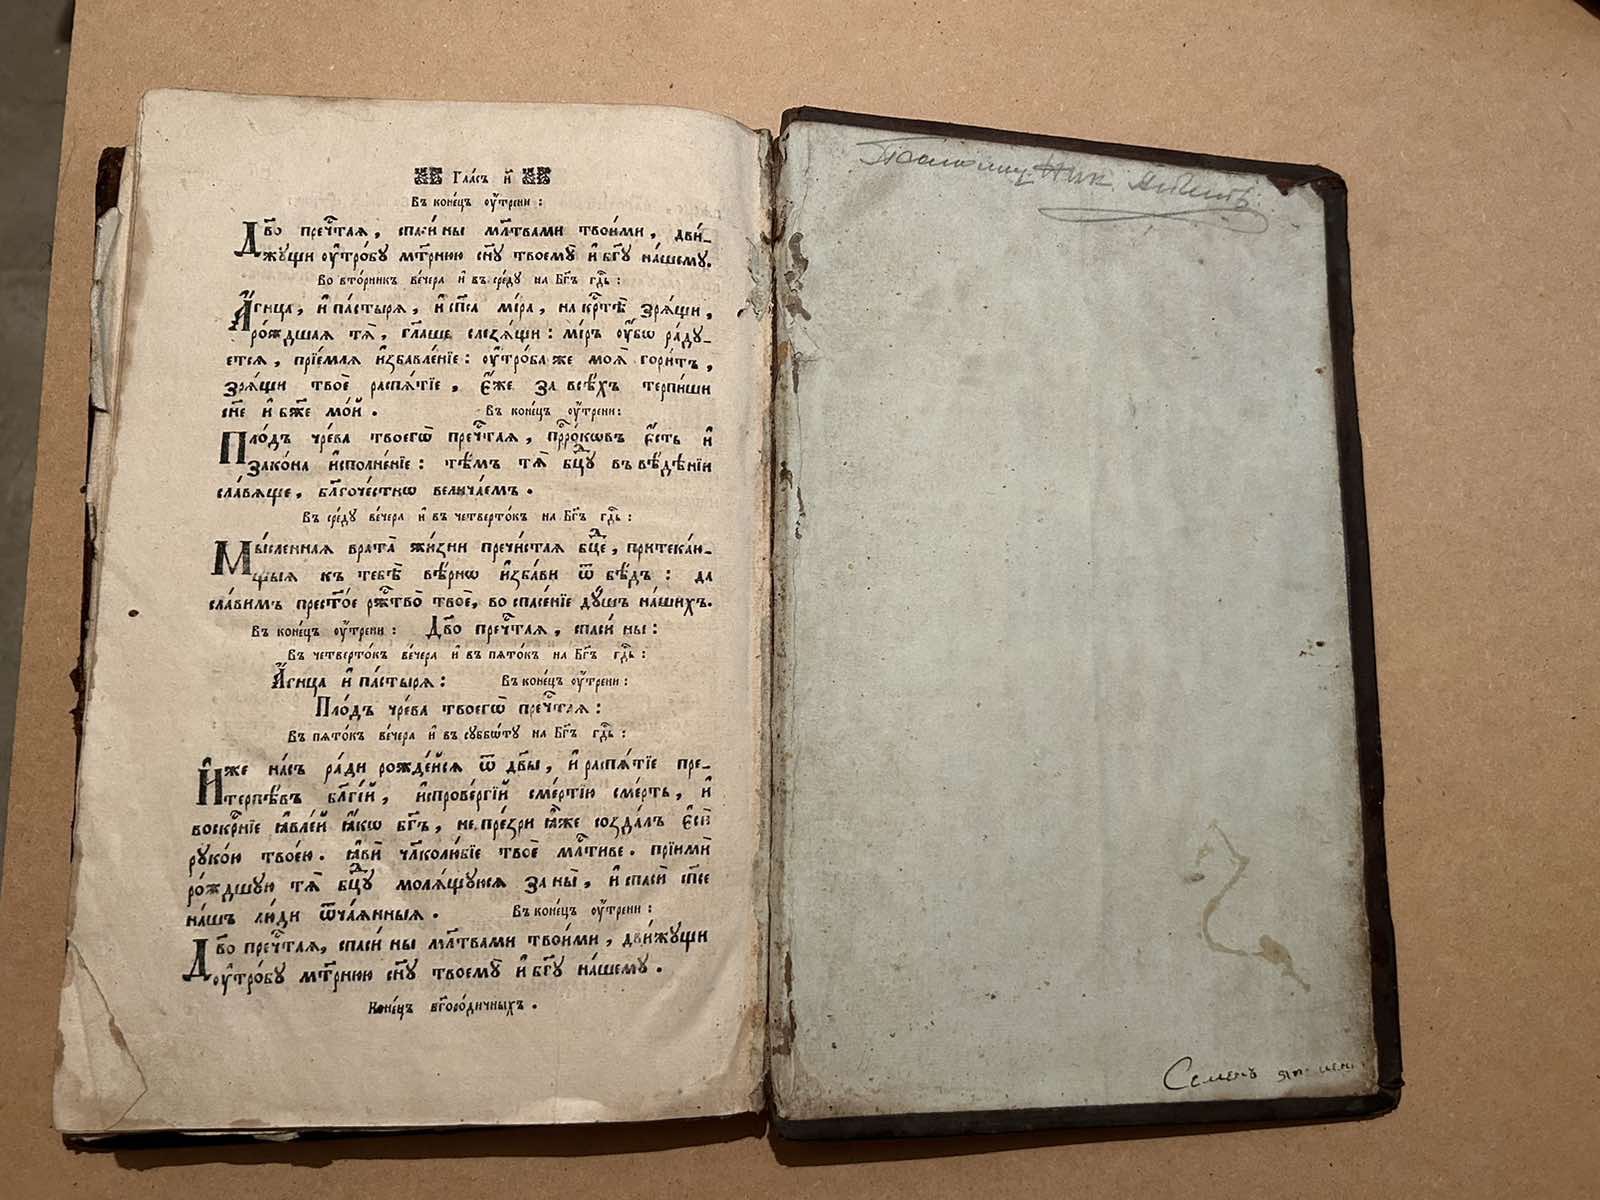 Гла́съ и҃
Въ коне́цъ оу҆́трени :
Дв҃о пречⷭ҇таѧ, спаси́ ны мл҃твами твои́ми, дви́-
жꙋщи оу҆тро́бꙋ мт҃рнюю сн҃ꙋ твоемꙋ̀ и҆ бг҃ꙋ на́шемꙋ.
Во вто́рникъ ве́чера и҆ въ сре́дꙋ на Бг҃ъ гдⷭ҇ь :
А҆́гница, и҆ па́стырѧ, и҆ сп҃са мі́ра, на крⷭ҇тѣ̀ зрѧ́щи,
ро́ждшаѧ тѧ̀, гл҃аше слезѧ́щи : мі́ръ оу҆́бѡ ра́дꙋ-
етсѧ, прїе́млѧ и҆збавле́нїе : оу҆тро́ба же моѧ̀ гори́тъ,
зрѧ́щи твоѐ распѧ́тїе, є҆́же за всѣ́хъ терпи́ши
сн҃е и҆ бж҃е мо́й. Въ коне́цъ оу҆́трени:
Пло́дъ чре́ва твоегѡ̀ пречⷭ҇таѧ, прⷪ҇ро́кѡвъ є҆́сть и҆
зако́на и҆сполне́нїе : тѣ́мъ тѧ̀ бцⷣꙋ въ вѣ́дѣнїи
сла́вѧще, бл҃гоче́стнѡ велича́емъ.
Въ сре́дꙋ ве́чера и҆ въ четверто́къ на Бг҃ъ гдⷭ҇ь :
Мы́сленнаѧ врата̀ жи́зни пречи́стаѧ бцⷣе, притека́ю-
щыѧ къ тебѣ̀ вѣ́рнѡ и҆зба́ви ѿ бѣ́дъ : да
сла́вимъ прест҃о́е ржⷭ҇тво̀ твоѐ, во спасе́нїе дꙋ́шъ на́шихъ.
Въ коне́цъ оу҆́трени : Дв҃о пречⷭ҇таѧ, спаси́ ны :
Въ четверто́къ ве́чера и҆ въ пѧто́къ на Бг҃ъ гдⷭ҇ь :
А҆́гница и҆ па́стырѧ : Въ коне́цъ оу҆́трени :
Пло́дъ чре́ва твоегѡ̀ пречⷭ҇таѧ :
Въ пѧто́къ ве́чера и҆ въ сꙋббѡ́тꙋ на Бг҃ъ гдⷭ҇ь :
И҆́же на́съ ра́ди рожде́йсѧ ѿ дв҃ы, и҆ распѧ́тїе пре-
терпѣ́въ бл҃гі́й, и҆спрове́ргїй сме́ртїю сме́рть, и҆
воскрⷭ҇нїе ꙗ҆вле́й ꙗ҆́кѡ бг҃ъ, не пре́зри ꙗ҆̀же созда́лъ є҆сѝ
рꙋко́ю твое́ю. ꙗ҆вѝ чл҃колю́бїе твоѐ млⷭ҇тиве. прїимѝ
ро́ждшꙋю тѧ̀ бцⷣꙋ молѧ́щꙋюсѧ за ны̀, и҆ спасѝ сп҃се
на́шъ лю́ди ѿча́ѧнныѧ. Въ коне́цъ оу҆́трени :
Дв҃о пречⷭ҇таѧ, спаси́ ны мл҃твами твои́ми, дви́жꙋщи
оу҆тро́бꙋ мт҃рнюю сн҃ꙋ твоемꙋ̀ и҆ бг҃ꙋ на́шемꙋ.
Коне́цъ бг҃оро́дичныхъ.
Семенъ